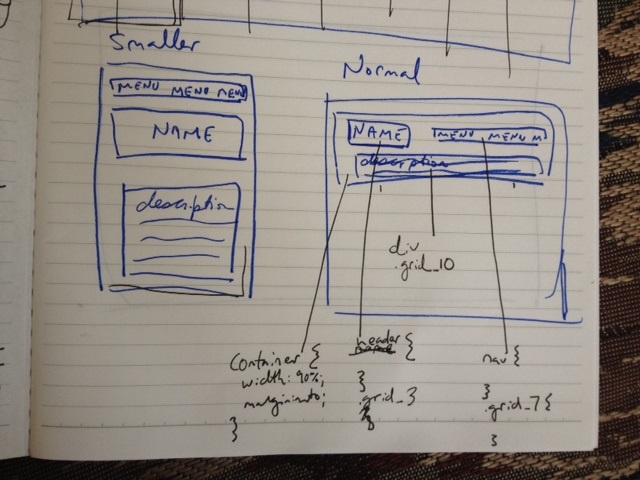 Smaller
MENU MENU MENU
NAME
description
Normal
NAME
MENU MENU M
description
div
.grid_10
Container {
width: 90%;
margin:auto;
}
header {
}
.grid_3
nav {
}
.grid_7 {
}